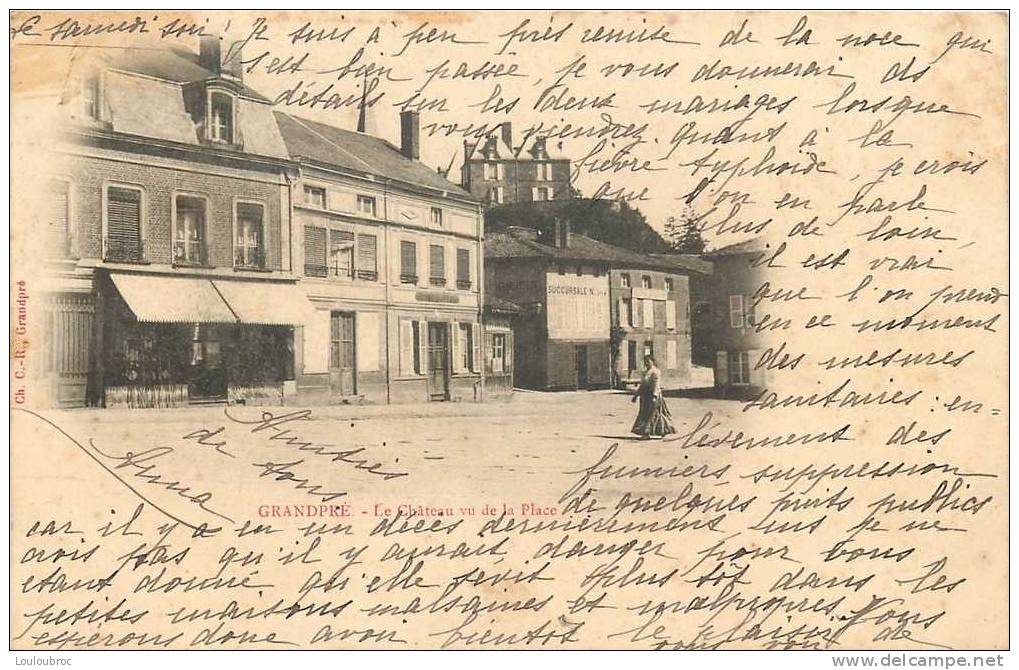 Ce samedi soir ! Je suis à peu près remise de la noce qui
s'est bien passée, je vous donnerai ds
détails sur les deux mariages lorsque
vous viendrez. quant à la
fièvre typhoïde, je crois
que l'on en parle
plus de loin,
il est vrai
que l'on prend
en ce moment
des mesures
sanitaires : en=
lèvement des
fumiers, suppression
de quelques puits publics
car il y a en un décès dernièrement Lus je ne
crois pas qu'il y aurait danger pour vous
étant donné qu'elle sévit plus tôt dans les
petites maisons malsaines et malpropres. Nous
espérons donc avoir bientôt le plaisir de
vous voir
Amitiés
de tous
Anna
SUCCURSALE N.
GRANDPRÉ. - Le Château vu de la Place
Ch. C.-R., Grandpré
© Louloubroc
website: delcampe.net